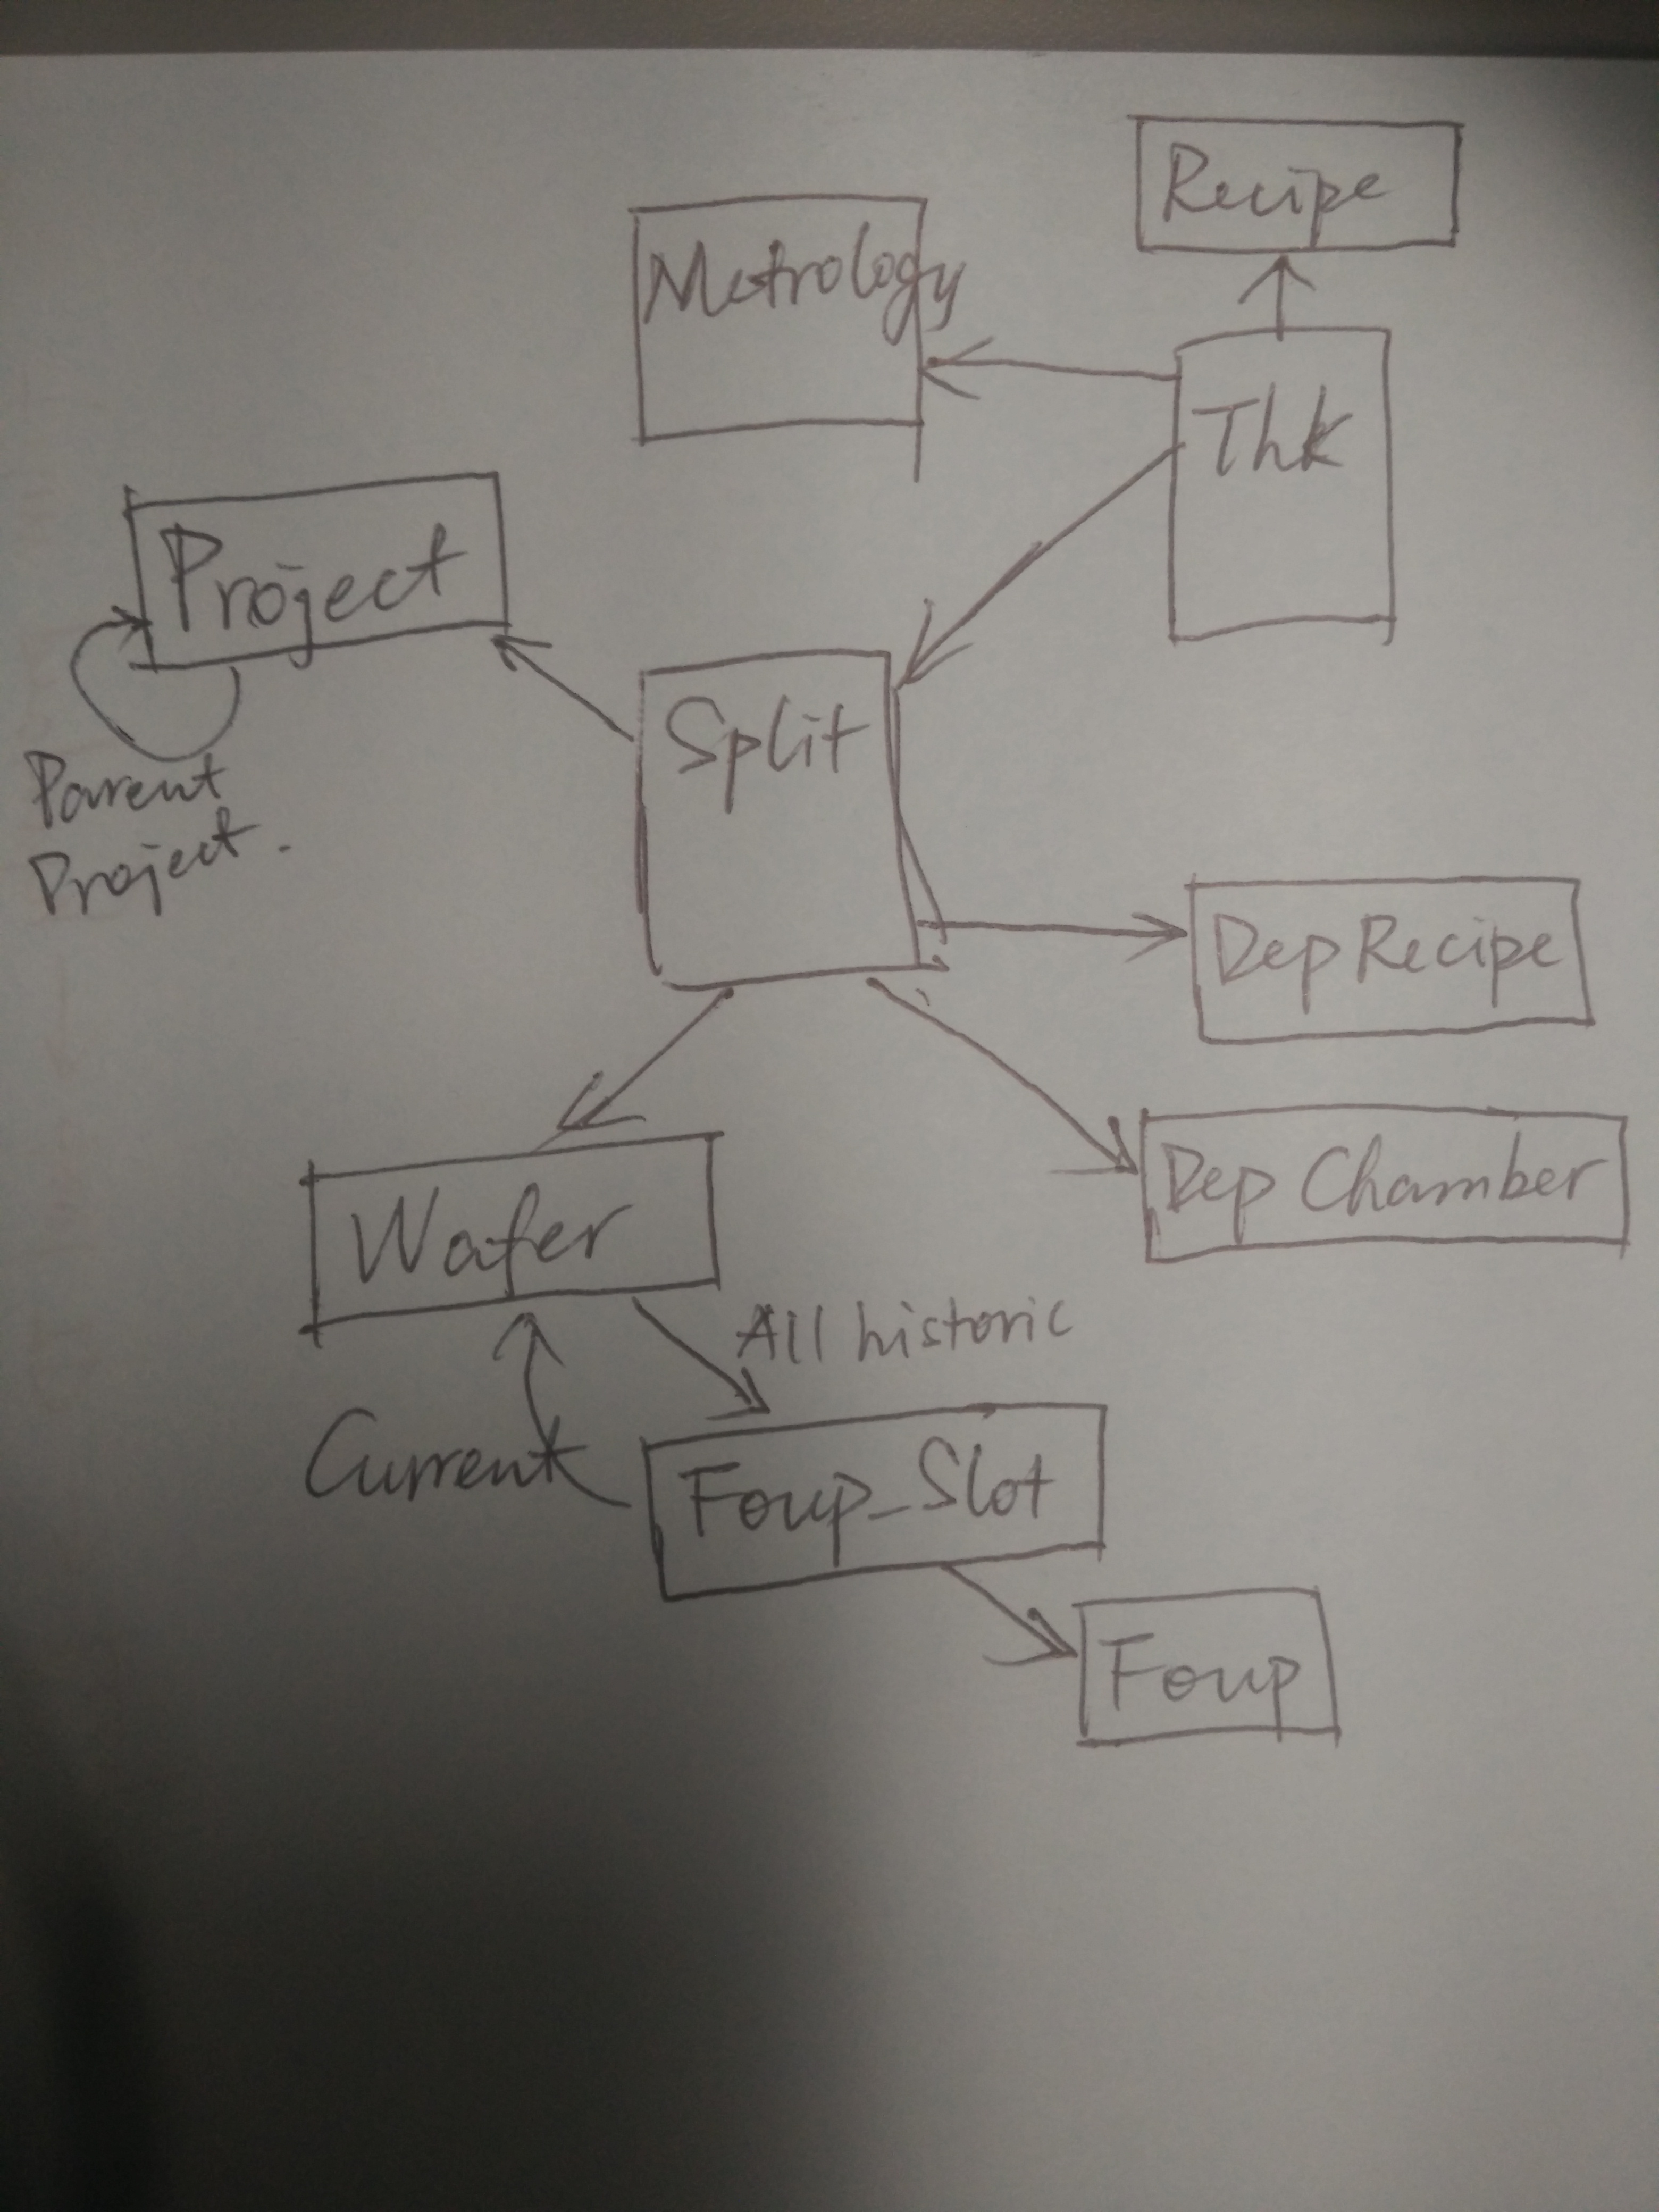 Recipe
Metrology
Thk
Project
Parent
Project.
Split
Dep Recipe
Dep Chamber
Wafer
All historic
Current
Foup_Slot
Foup